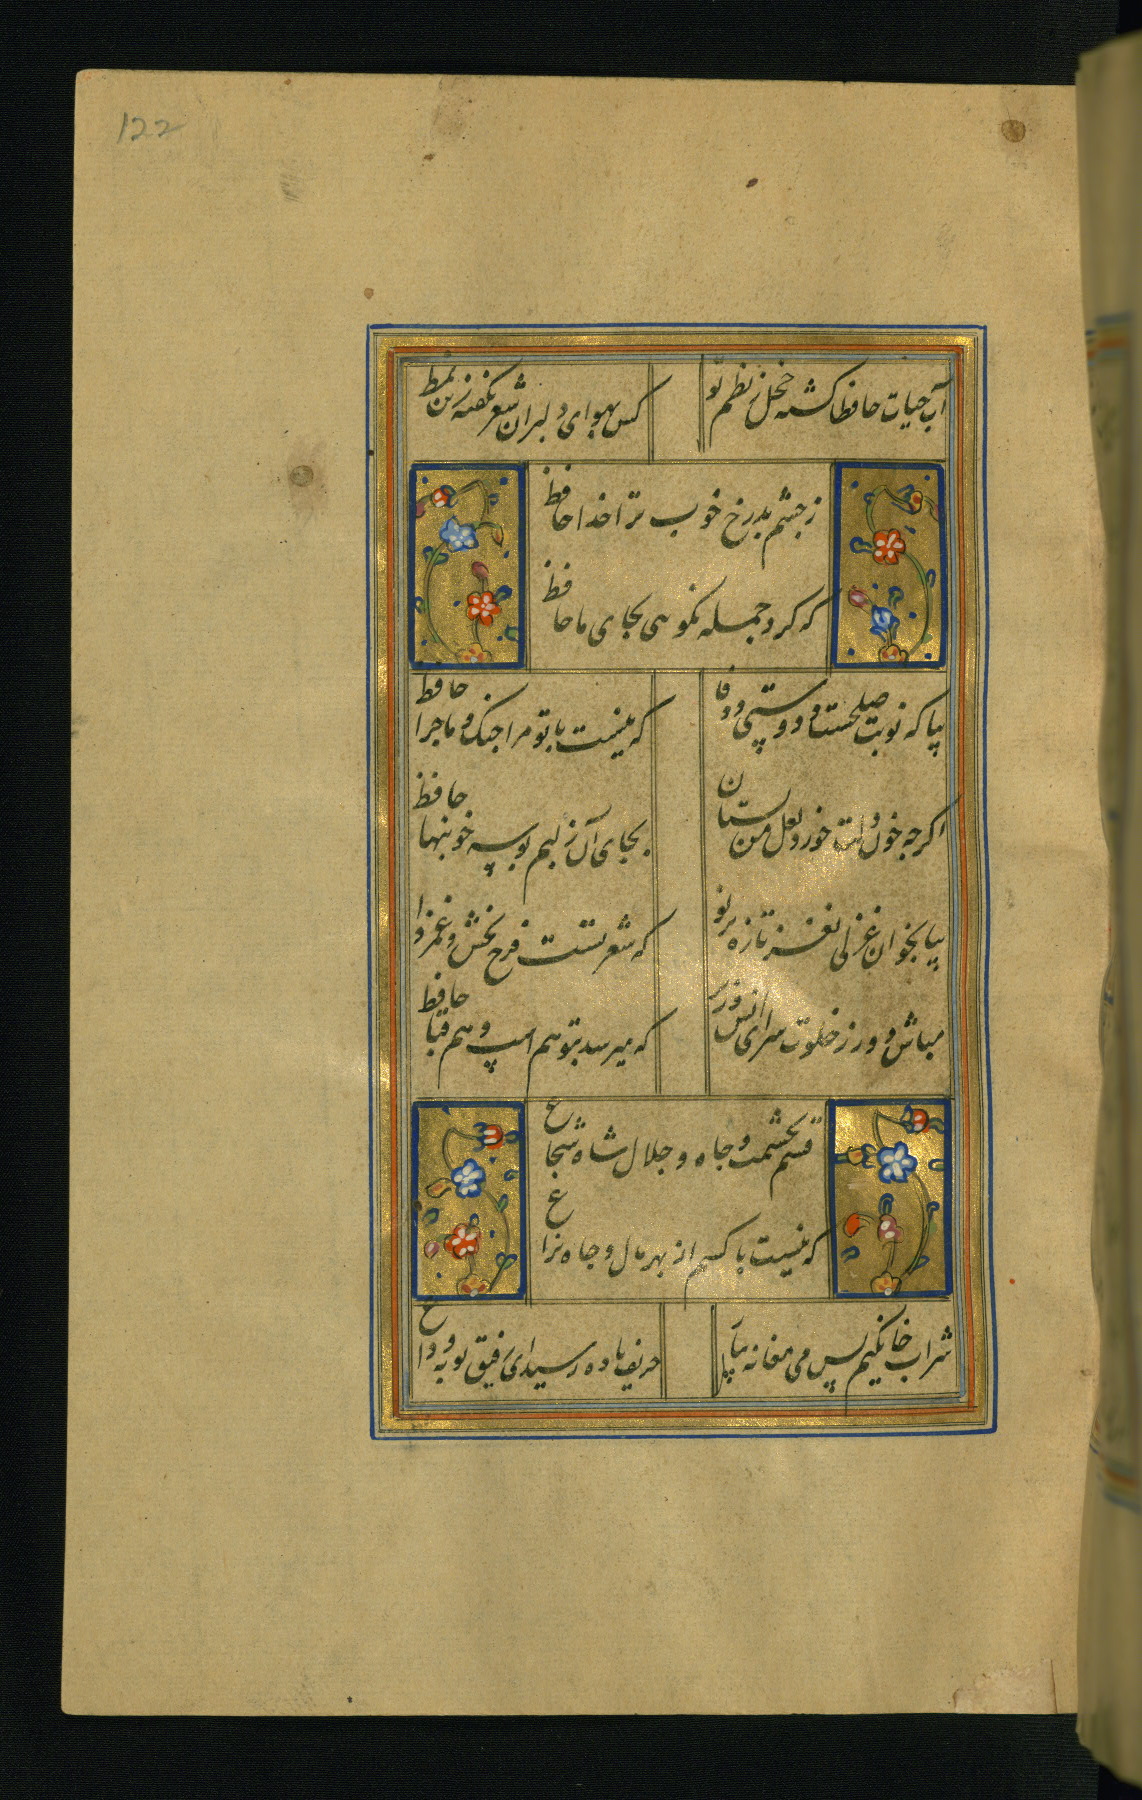 122
آب حیات حافظا کشته خجل ز نظم تو
کس بهوای دلبران شعر نکفته زین نمط
ز چشم بد رخ خوب ترا خدا حافظ
که کرد جمله نکوهی بجای ما حافظ
بیا که نوبت صلحست و دوستی و وفا
که نیست با تو مرا جنک و ماجرا حافظ
اکرچه خون دلت خورد لعل من بستان
بجای آن ز لبم بوسه خونبها حافظ
بیا بخوان غزلی نغز تازه تر نو
که شعر تست فرح بخش و غم زدا حافظ
مباش دور ز خلوت سرای انس
که میرسد بتو هم اسب و هم قبا
قسم بحشمت و جاه و جلال شاه شجاع
که نیست با کسم از بهر مال و جاه نزاع
شراب خانکیم بس می مغانه بیار
حریف باده رسید ای رفیق توبه وداع